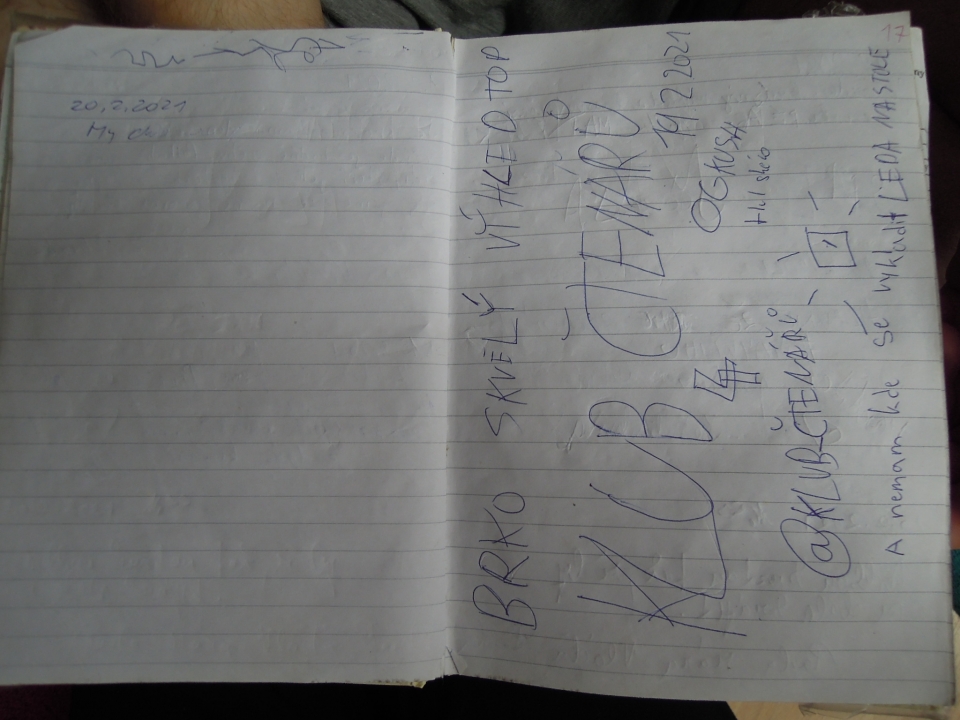 20.2.2021
My
BRKO SKVĚLÝ VÝHLED TOP
KLUB ČTENÁRŮ
19/2 2021
OG KUSH
@KLUB-ČTENÁŘŮ
A nemam kde se vykladit LEDA NA STOLE
17